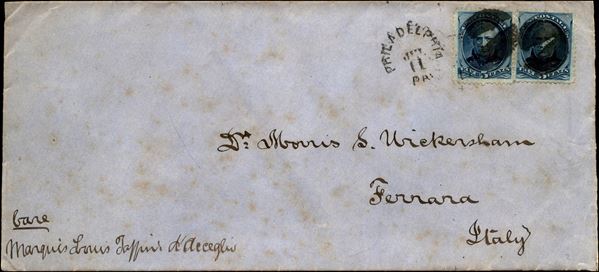 PHILADELPHIA
11
PA.
Dr. Morris S. Wickersham
Ferrara
Italy
care
Marquis Louis d'Azeglio